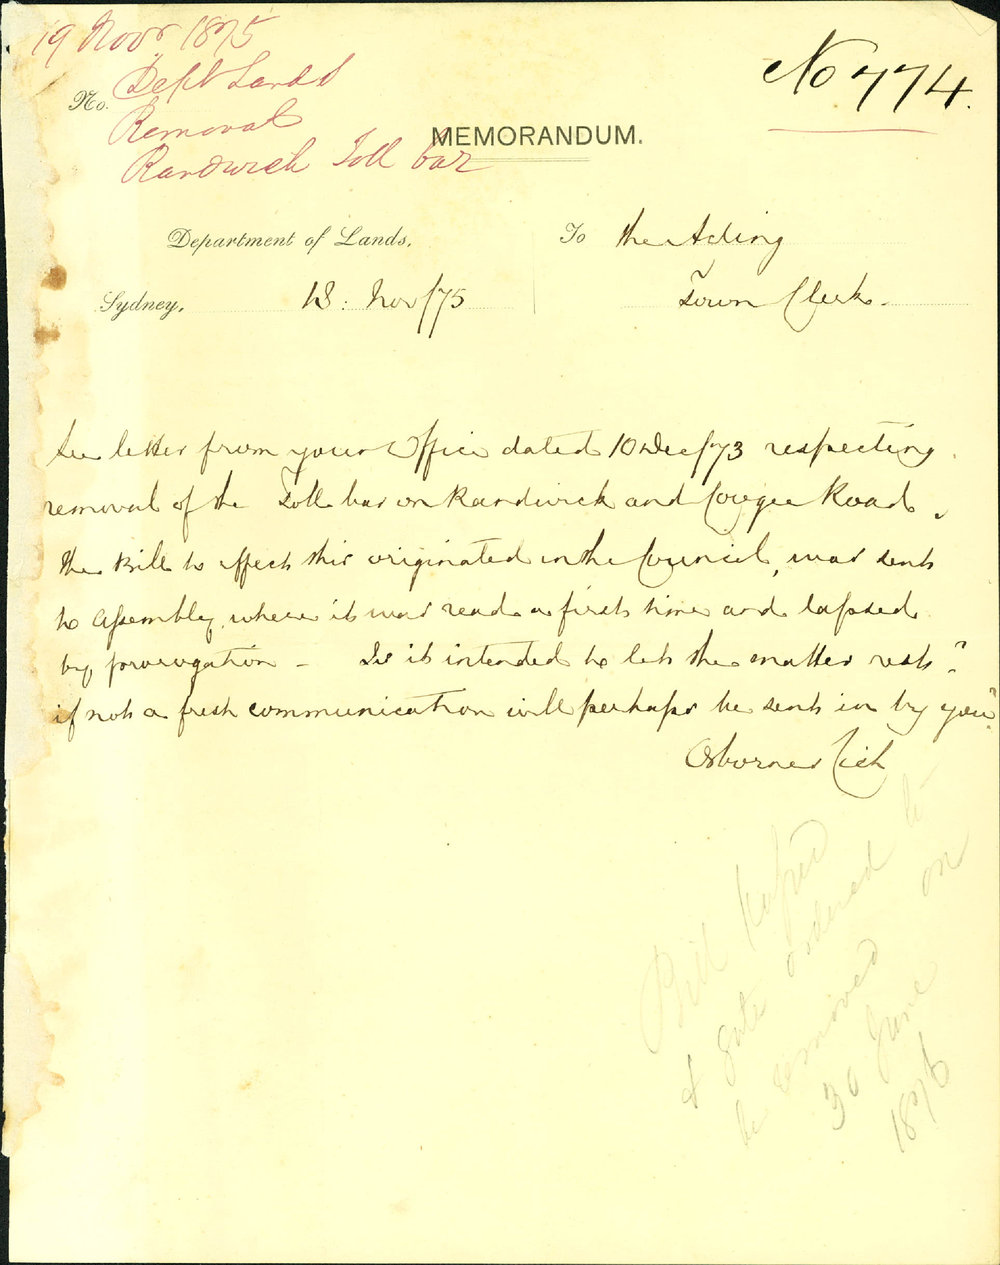 19 Novr 1875
No 774.
No. Dept Lands
Removal
Randwick Toll bar
MEMORANDUM.
Department of Lands,
To the Acting
Sydney, 18: Nov/75
Town Clerk.
See letter from your Office dated 10 Dec/73 respecting
removal of the Toll bar on Randwick and Coogee Road.
the Bill to effect this originated in the Council, was sent
to Assembly where it was read a first time and lapsed
by prorogation - Is it intended to let the matter rest?
if not a fresh communication will perhaps be sent in by you?
Osborne
Bill
& gate ordered to
be removed on
30 June
1876